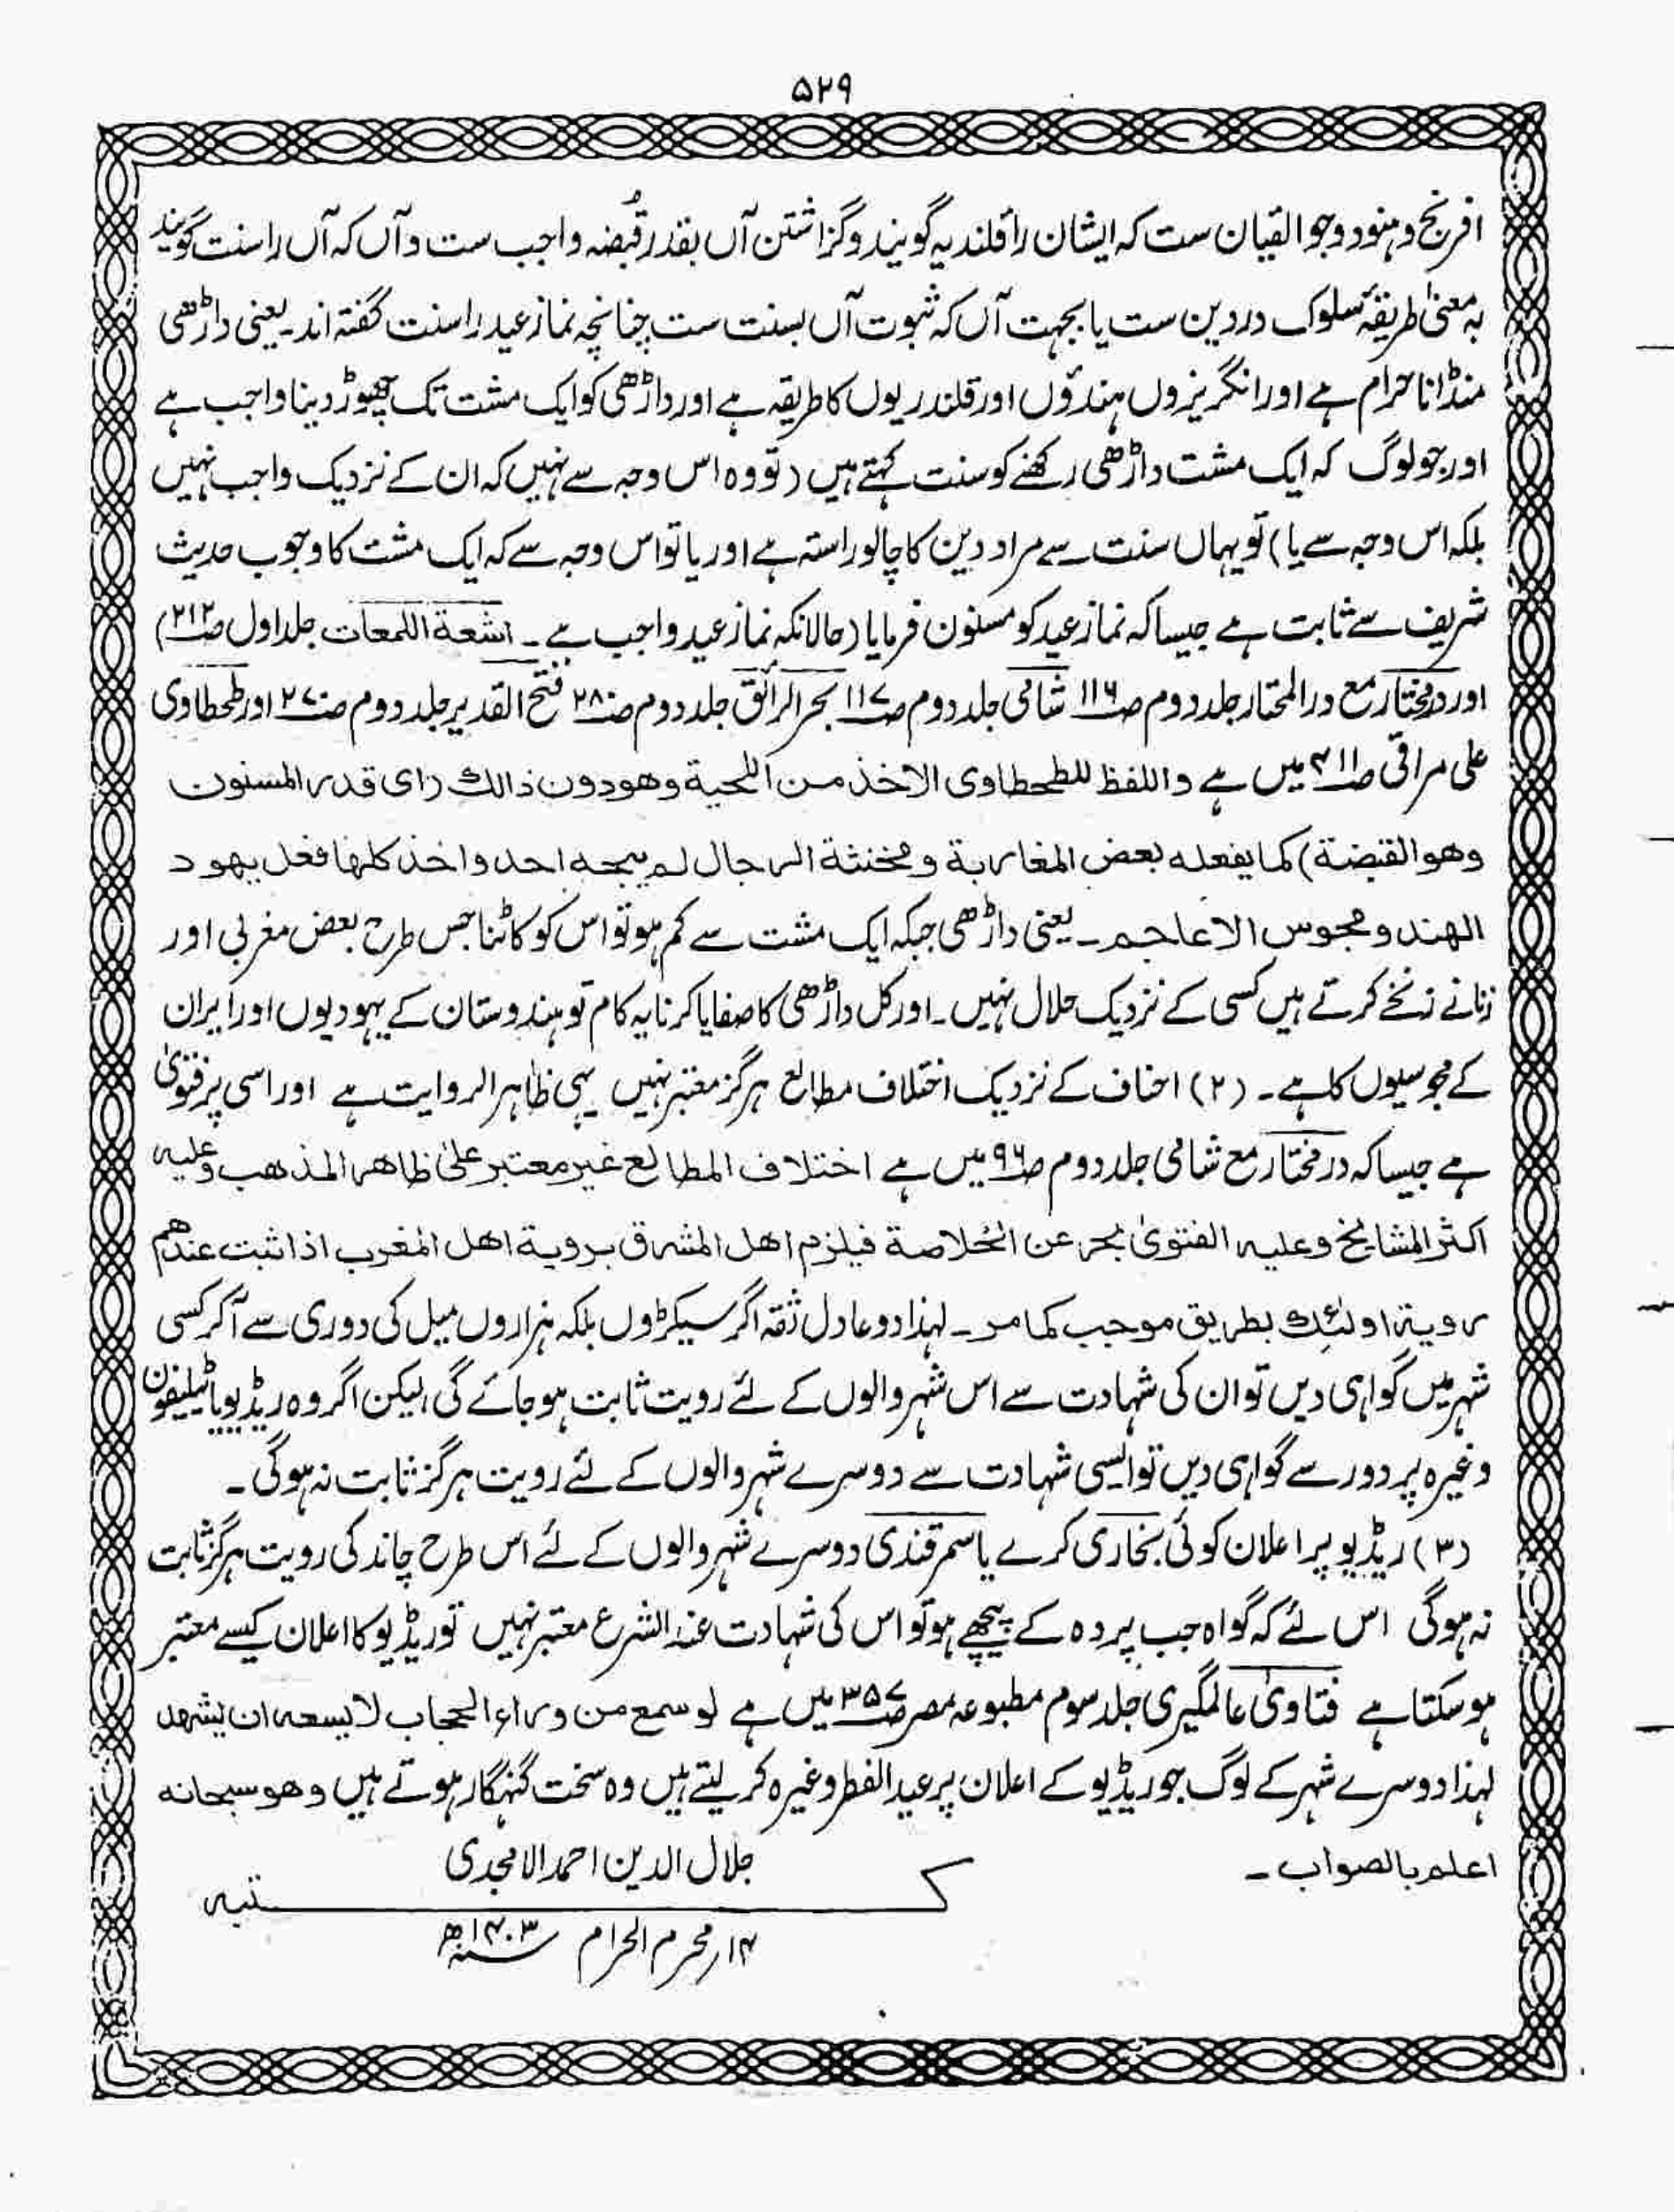 ۵۲۹
افرنج و ہنود وجوالقیان ست کہ ایشان را قلندریہ گویند و گزاشتن آں بقدر قُبضہ واجب ست و آں کہ آں را سنت گویند
بہ معنیٰ طریقۂ سلوک در دین ست یا بجہت آں کہ ثبوت آں بسنت ست چنانچہ نماز عید را سنت گفتہ اند ۔ یعنی داڑھی
منڈانا حرام ہے اور انگریزوں ہندؤوں اور قلندریوں کا طریقہ ہے اور داڑھی کو ایک مشت تک چھوڑ دینا واجب ہے
اور جو لوگ کہ ایک مشت داڑھی رکھنے کو سنت کہتے ہیں ( تو وہ اس وجہ سے نہیں کہ ان کے نزدیک واجب نہیں
بلکہ اس وجہ سے یا ) تو یہاں سنت سے مراد دین کا چالو راستہ ہے اور یا تو اس وجہ سے کہ ایک مشت کا وجوب حدیث
شریف سے ثابت ہے جیسا کہ نماز عید کو مسنون فرمایا (حالانکہ نماز عید واجب ہے ۔ اشعۃ اللمعات جلد اول ص۲۱۲)
اور درمختار مع در المحتار جلد دوم ص۱۱۶ شامی جلد دوم ص۱۱۷ بحر الرائق جلد دوم ص۲۸۰ فتح القدیر جلد دوم ص۲۷۰ اور طحطاوی
علی مراقی ص۴۱۱ میں ہے واللفظ للطحطاوی الاخذ من اللحیة وھو دون ذالك (ای قدر المسنون
وھو القبضة) کما یفعلہ بعض المغاربة و مخنثة الرجال لم یبحہ احد واخذ کلھا فعل یھود
الھند و مجوس الاعاجم ۔ یعنی داڑھی جبکہ ایک مشت سے کم ہو تو اس کو کاٹنا جس طرح بعض مغربی اور
زنانے زنخے کرتے ہیں کسی کے نزدیک حلال نہیں ۔ اور کل داڑھی کا صفایا کرنا یہ کام تو ہندوستان کے یہودیوں اور ایران
کے مجوسیوں کا ہے ۔ (۲) احناف کے نزدیک اختلاف مطالع ہرگز معتبر نہیں یہی ظاہر الروایت ہے اور اسی پر فتویٰ
ہے جیسا کہ درمختار مع شامی جلد دوم ص۹۶ میں ہے اختلاف المطالع غیر معتبر علیٰ ظاھر المذھب وعلیہ
اکثر المشایخ وعلیہ الفتویٰ بحر عن الخلاصة فیلزم اھل المشرق برویة اھل المغرب اذا ثبت عندھم
رویة اولئك بطریق موجب کما مر ۔ لہذا دو عادل ثقہ اگر سیکڑوں بلکہ ہزاروں میل کی دوری سے آکر کسی
شہر میں گواہی دیں تو ان کی شہادت سے اس شہر والوں کے لئے رویت ثابت ہو جائے گی، لیکن اگر وہ ریڈیو یا ٹیلیفون
وغیرہ پر دور سے گواہی دیں تو ایسی شہادت سے دوسرے شہر والوں کے لئے رویت ہرگز ثابت نہ ہوگی ۔
(۳) ریڈیو پر اعلان کوئی بخاری کرے یا سمرقندی دوسرے شہر والوں کے لئے اس طرح چاند کی رویت ہرگز ثابت
نہ ہوگی اس لئے کہ گواہ جب پردہ کے پیچھے ہو تو اس کی شہادت عند الشرع معتبر نہیں تو ریڈیو کا اعلان کیسے معتبر
ہو سکتا ہے فتاویٰ عالمگیری جلد سوم مطبوعہ مصر ص۳۵۷ میں ہے لو سمع من وراء الحجاب لا یسعہ ان یشھد
لہذا دوسرے شہر کے لوگ جو ریڈیو کے اعلان پر عید الفطر وغیرہ کر لیتے ہیں وہ سخت گنہگار ہوتے ہیں وھو سبحانہ
اعلم بالصواب ۔
جلال الدین احمد الامجدی
کتبہ
۱۴ر محرم الحرام ۱۴۰۳ھ